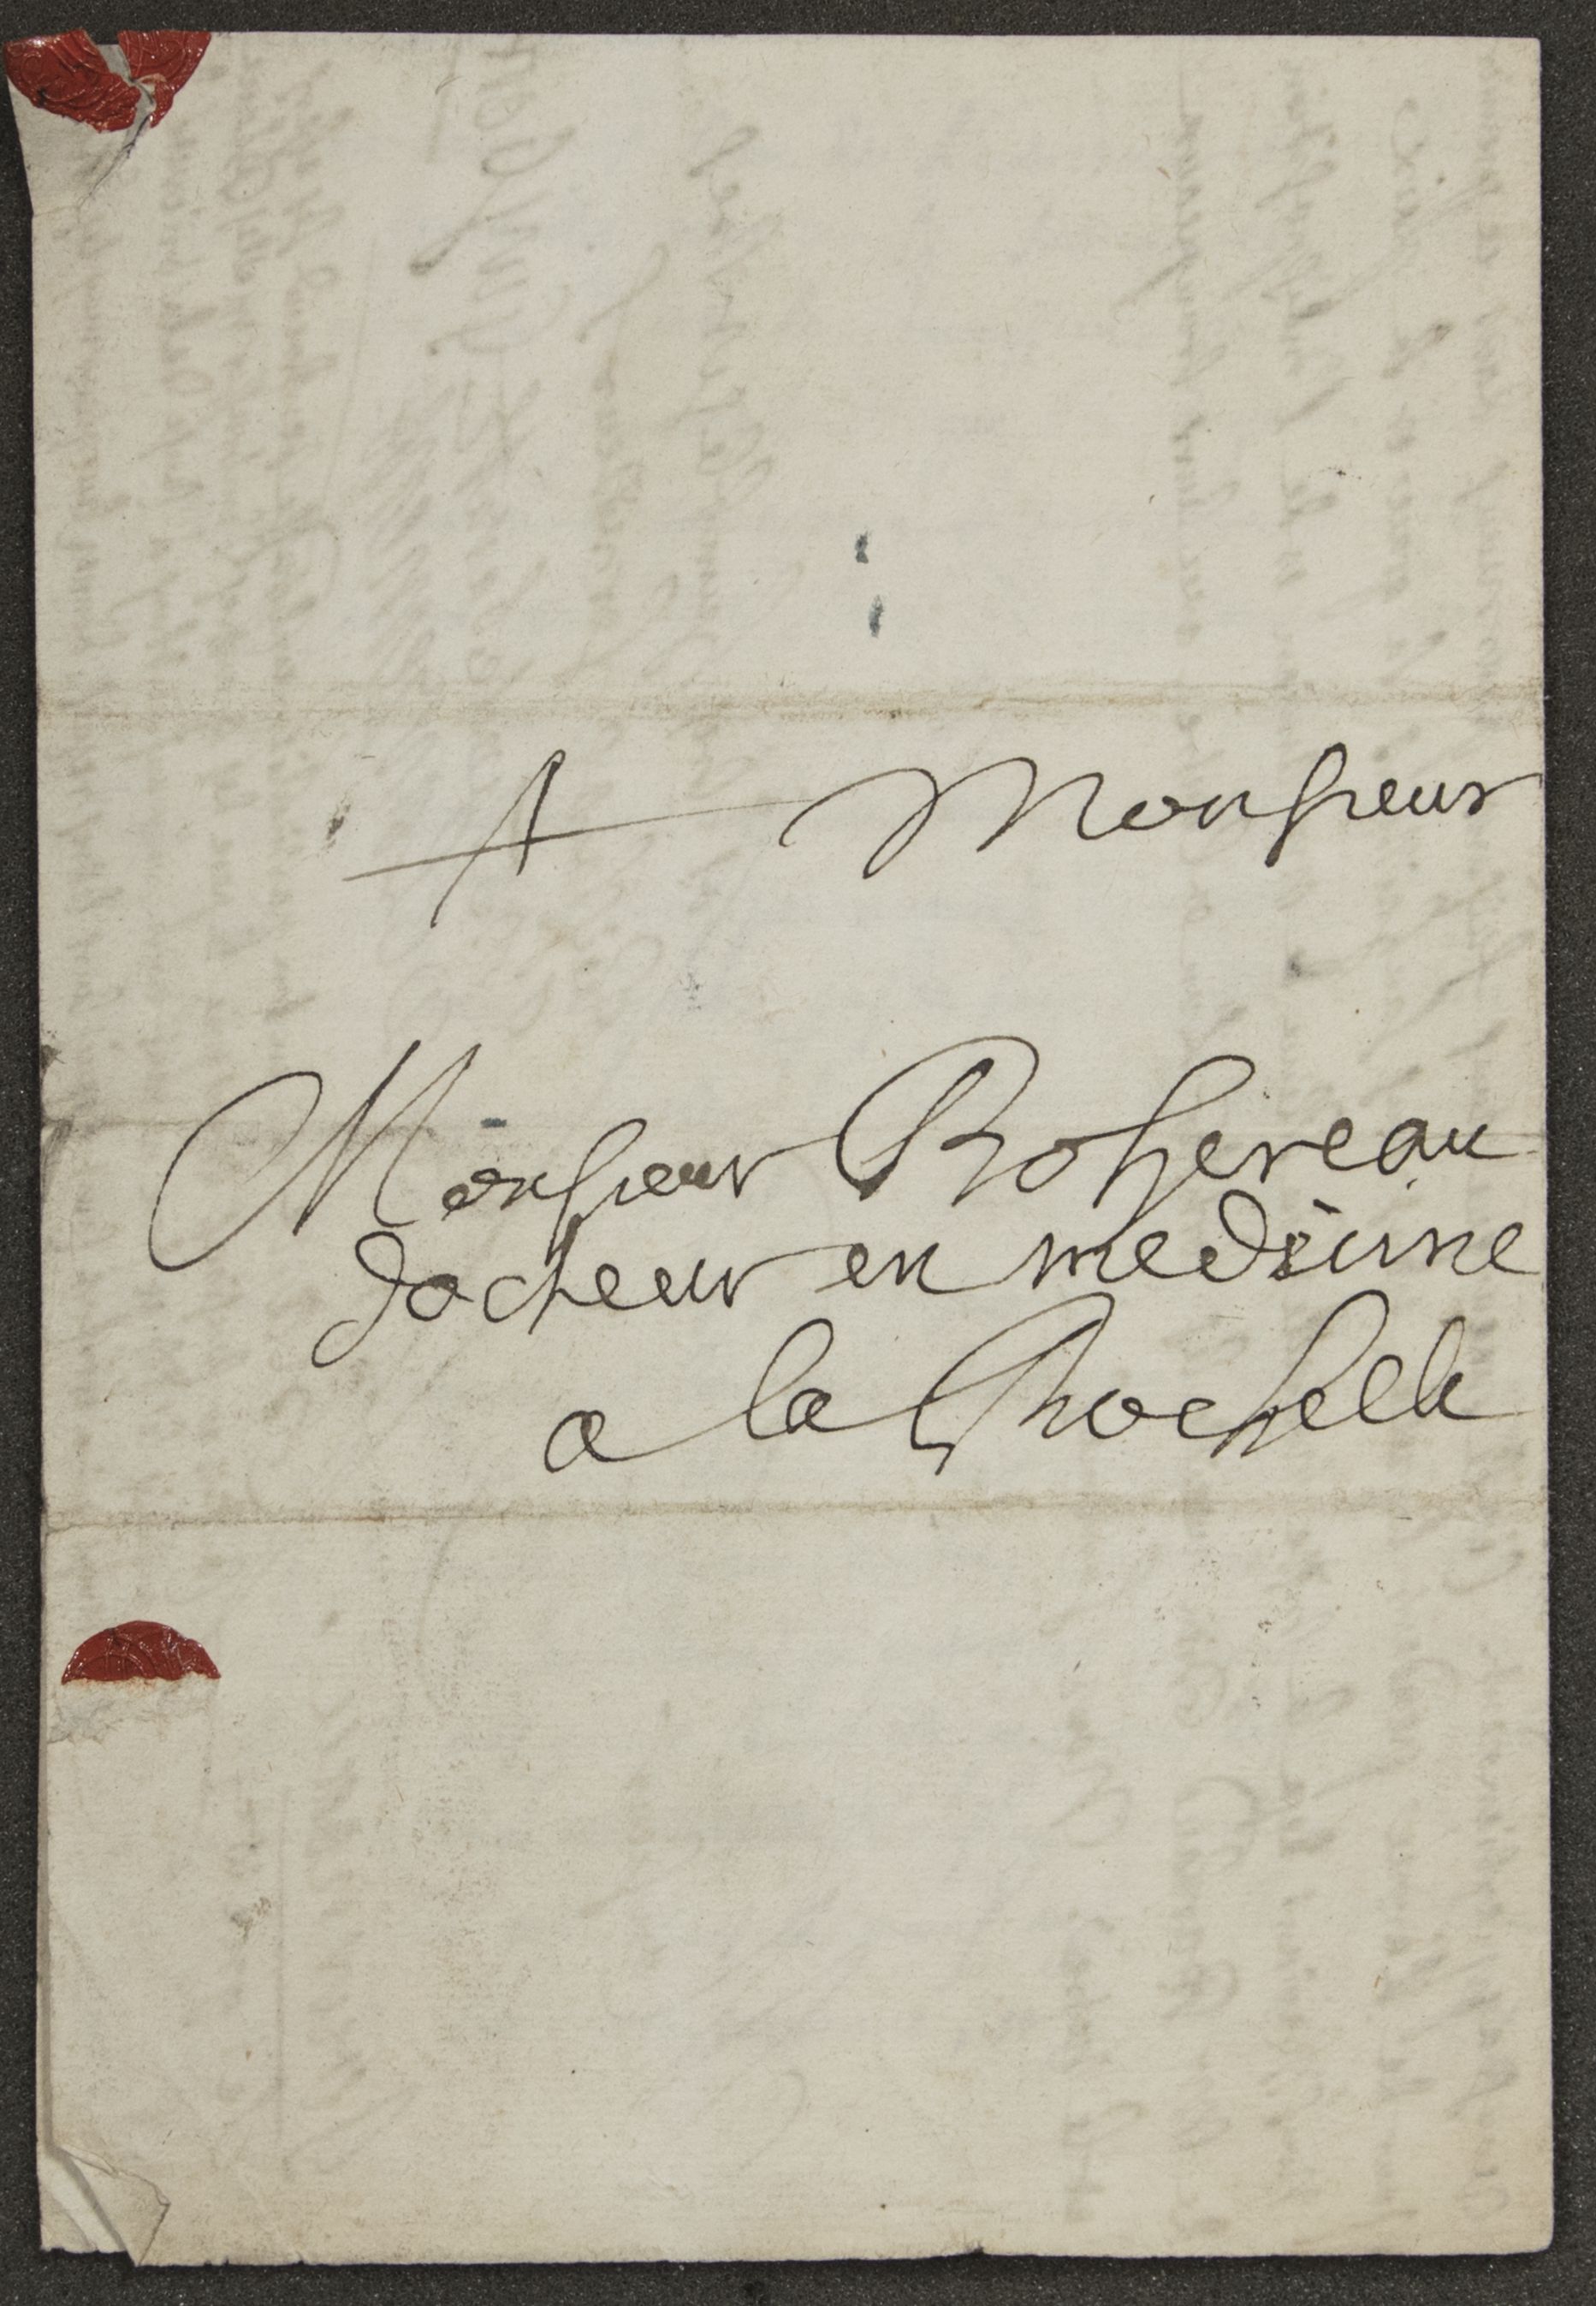 A Monsieur
Monsieur Bohereau
docteur en medecine
a la Rochelle